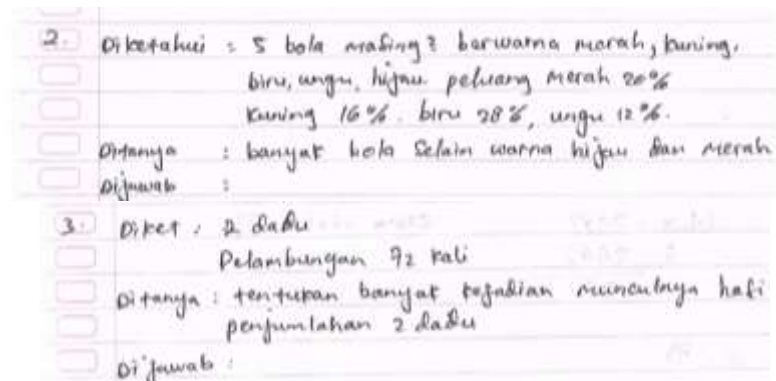 2. Diketahui : 5 bola masing2 berwarna merah, kuning,
biru, ungu, hijau peluang merah 20%
Kuning 16%. biru 28%, ungu 12%.
Ditanya : banyak bola selain warna hijau dan merah
Dijawab :
3. Diket : 2 dadu
Pelambungan 72 kali
Ditanya : tentukan banyak kejadian munculnya hasi
penjumlahan 2 dadu
Dijawab :